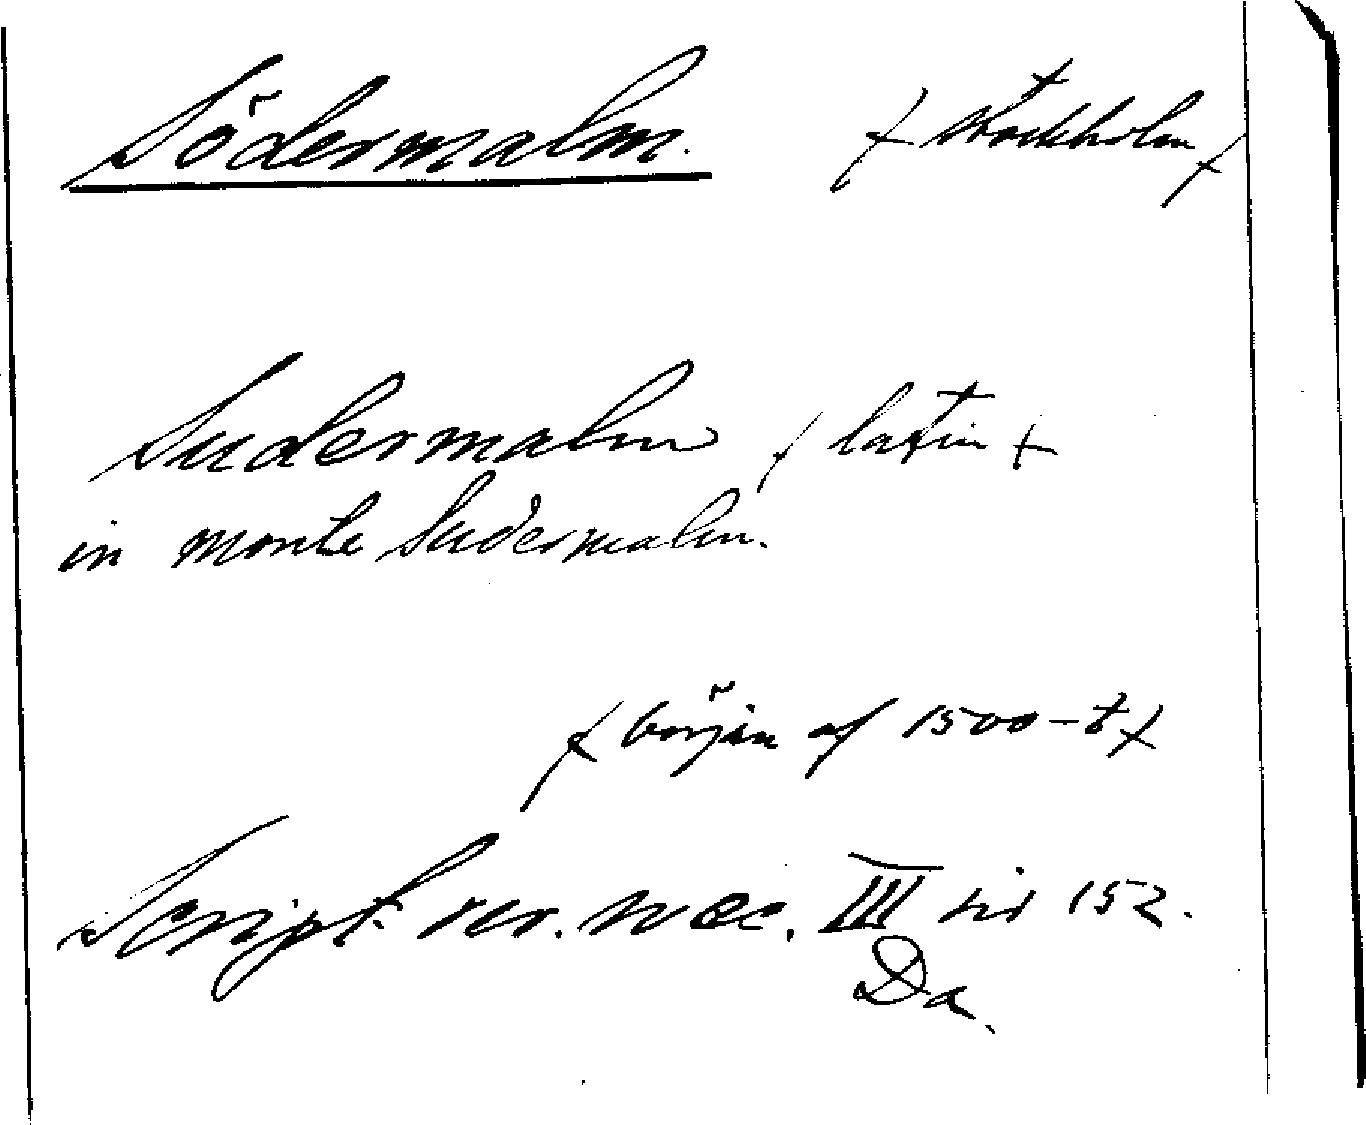 Södermalm. (Stockholm)
Sudermalm (latin)
in monte Sudermalm.
(början af 1500-t)
Script. rer. svec. III sid 152.
Da.